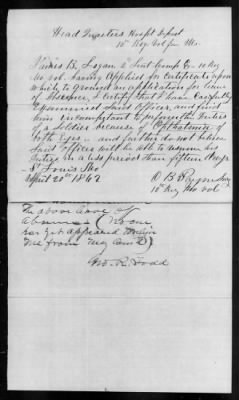 Head Quarters Hospt Dept
10th Reg Vol Mo.
James B. Logan 2 Lieut Comp G 10 Reg
Mo vol. having Applied for Certificate upon
which to ground an application for leave
of Absence, I certify that I have carefully
Examined said Officer, and find
him incompetant to perform the Duties
of a Soldier because of Opthalmia of
both Eyes and further do not believe
said Officer will be able to resume his
Duties in a less period than fifteen days
St Louis Mo
April 20th 1862
10th Reg Mo vol
The above Case of
Absence
has yet appeared before
me from
Geo. R. Todd